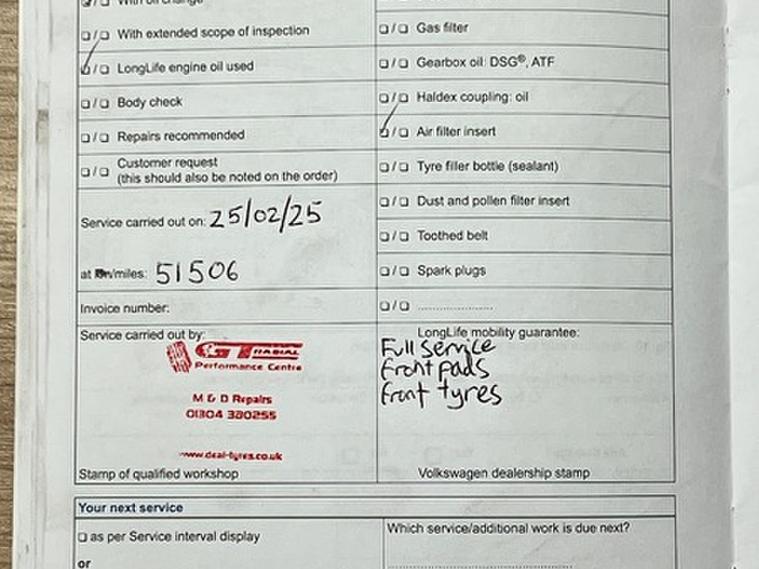 With oil change
With extended scope of inspection
LongLife engine oil used
Body check
Repairs recommended
Customer request
(this should also be noted on the order)
Service carried out on: 25/02/25
at km/miles: 51506
Invoice number:
Service carried out by:
GT RADIAL
Performance Centre
M & D Repairs
01304 380255
www.deal-tyres.co.uk
Stamp of qualified workshop
Gas filter
Gearbox oil: DSG®, ATF
Haldex coupling: oil
Air filter insert
Tyre filler bottle (sealant)
Dust and pollen filter insert
Toothed belt
Spark plugs
LongLife mobility guarantee:
Full service
front pads
front tyres
Volkswagen dealership stamp
Your next service
as per Service interval display
or
Which service/additional work is due next?